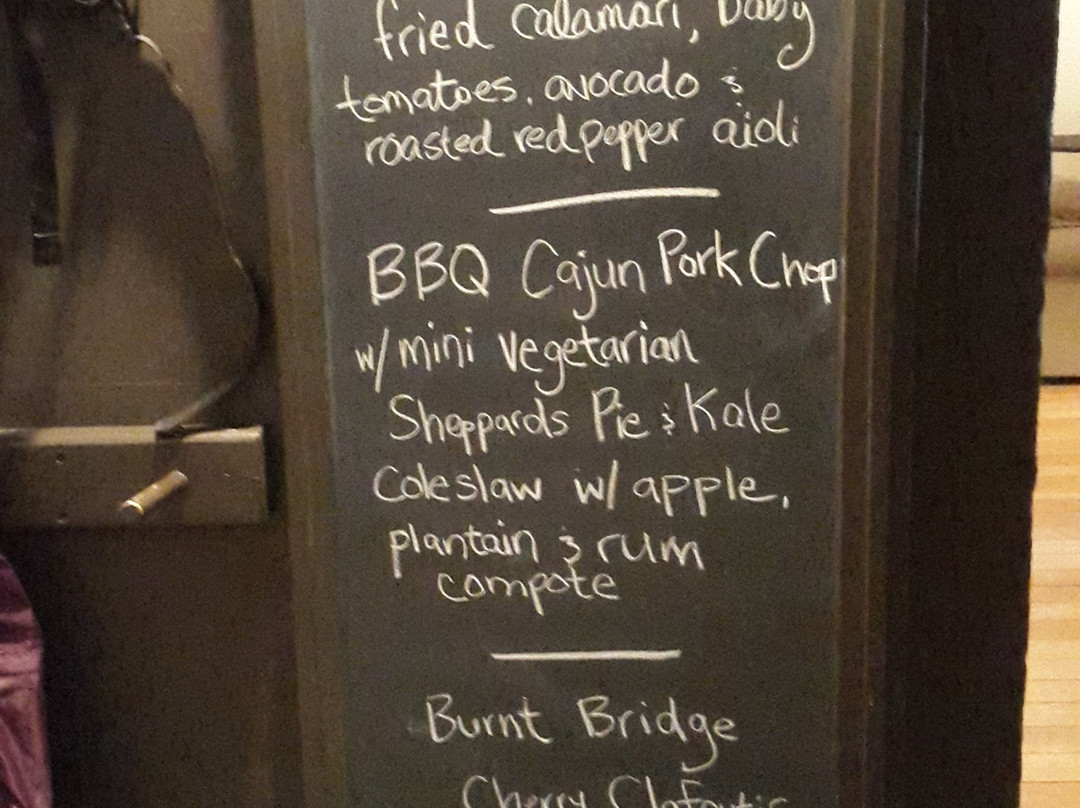 fried calamari, baby
tomatoes, avocado &
roasted red pepper aioli
BBQ Cajun Pork Chop
w/ mini vegetarian
Sheppards Pie & Kale
Coleslaw w/ apple,
plantain & rum
compote
Burnt Bridge
Cherry Clafoutis